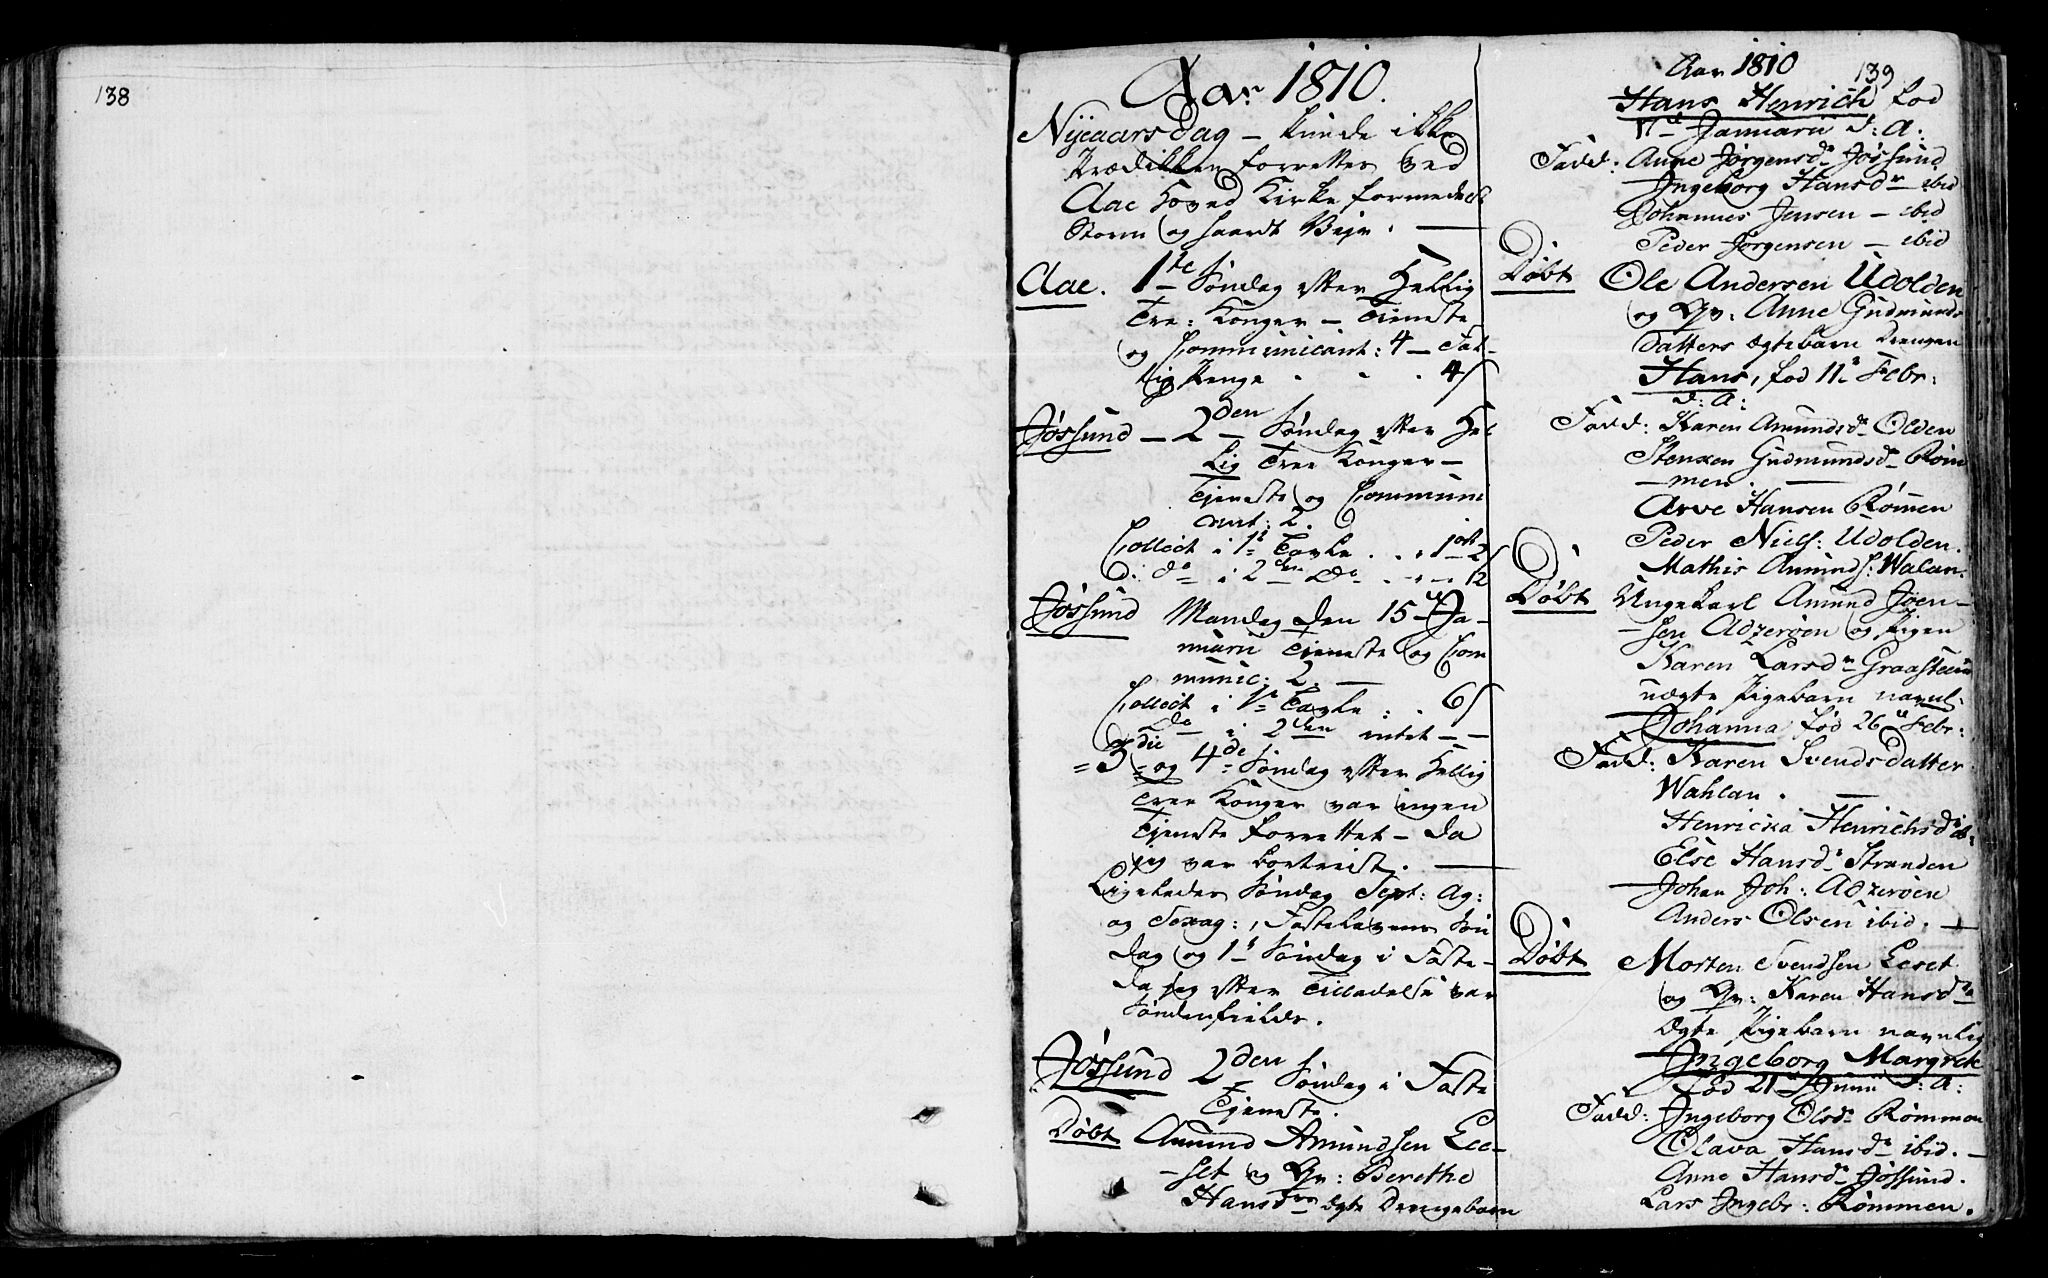 138
Aar 1810.
Nyeaarsdag - kunde ikke
Prædikken forrettes ved
Aae Hoved Kirke formedelst
Storm og haardt Vejr. -
Aae. 1ste Søndag efter Hellig
Tre: Konger - Tieneste
og Communicant: 4 - Fat-
tig Penge . . . 4 s
Jøssund - 2den Søndag efter Hel
lig Tree Konger -
Tieneste og Communi
cant: 2.
Collect i 1ste Tavle . . 1 ort 2 s
Do i 2den Do . - - 12
Jøssund Mandag den 15de Ja-
nuarii Tieneste og Com
munic: 2. -
Collect i 1ste Tavle : . 6 s
Do i 2den intet - -
= 3die og 4de Søndag efter Hellig
Tree Konger var ingen
Tieneste forrettet - da
jeg var bortreist. -
Ligeledes Søndag Sept: Ag:
og Sexag:, Fastelavens Søn
dag og 1ste Søndag i Faste -
da jeg efter Tilladelse var
Søndenfields.
Jøssund 2den Søndag i Faste
Tjeneste.
Døbt Amund Amundsen Ee-
-set og Qv: Berethe
Hansdtrs ægte Drengebarn
Aar 1810
139
Hans Henrich fød
Januarii d: A:
Fadd: Anne Jørgensdr Jøssund
Ingeborg Hansdr - ibid
Johannes Jensen - ibid
Peder Jørgensen - ibid
Døbt Ole Andersen Udolden
og Qv: Anne Gudmunds
datters ægtebarn Drengen
Hans, fød 11te Febr:
d: A:
Fadd: Karen Amundsdr Olden
Stenken Gudmundsdr Røm
-men. -
Arve Hansen Rømen
Peder Niels: Udolden.
Mathis Amunds: Walan.
Døbt Ungekarl Amund Joen-
-sen Adzerøen og Pigen
Karen Larsdr Graasteen
uægte Pigebarn navnl.
Johanna fød 26de Febr:
Fadd: Karen Svendsdatter
Wahlan. -
Henricka Henrichsdr ib:
Else Hansdr Stranden
Johan Joh: Adzerøen
Anders Olsen ibid. -
Døbt Morten Svendsen Eeset
og Qv: Karen Hansdrs
ægte Pigebarn navnlig
Ingeborg Margrete
fød 21de d: A:
Fadd: Ingeborg Olsdr Rømmen
Olava Hansdr ibid. -
Anne Hansdr Jøssund.
Lars Ingebr: Rømmen.